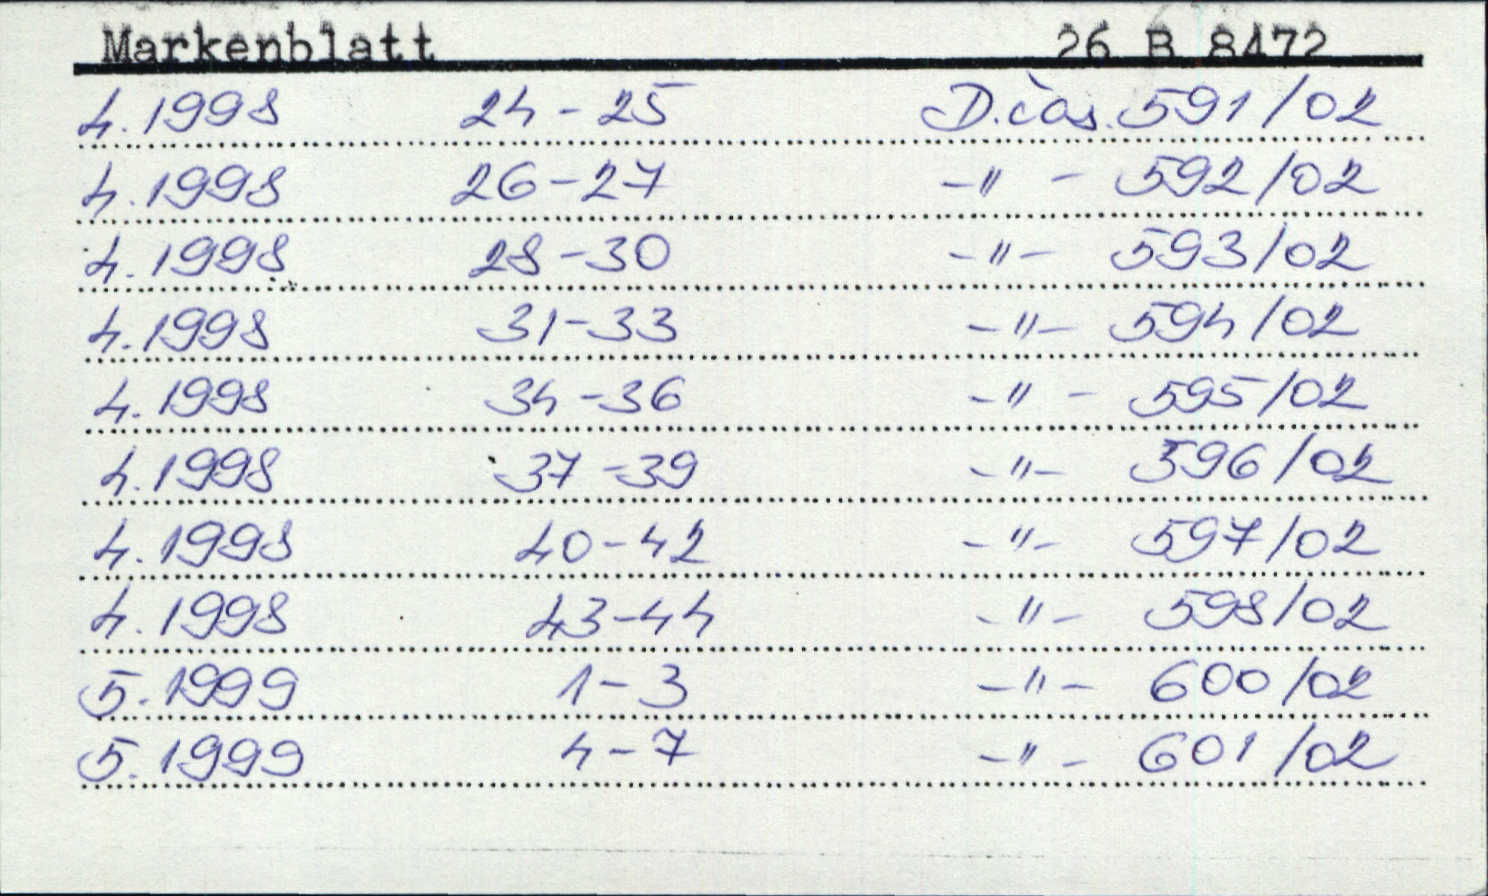 Markenblatt 26 B 8472
4.1998 24-25 D.čas. 591/02
4.1998 26-27 -"- 592/02
4.1998 28-30 -"- 593/02
4.1998 31-33 -"- 594/02
4.1998 34-36 -"- 595/02
4.1998 37-39 -"- 596/02
4.1998 40-42 -"- 597/02
4.1998 43-44 -"- 598/02
5.1999 1-3 -"- 600/02
5.1999 4-7 -"- 601/02